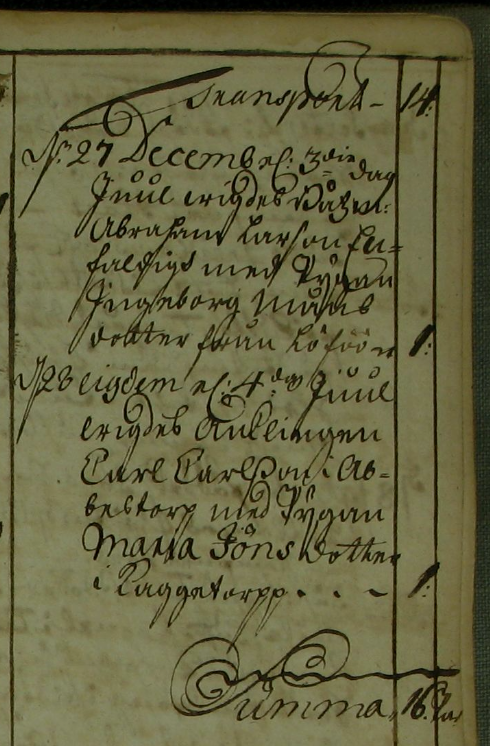 Transport - 14.
N: 27 Decemb el: 3die dag
Juul wigdes
Abraham Larson En=
faldigt med Pygan
Ingeborg Måns
dotter från Löföön 1:
28 eigdem el: 4de Juul
wigdes Änklingen
Carl Carlßon i Ab=
bestorp med Pygan
Maria Jöns dotter
i Laggetorpp . . - 1:
Summa. 16.